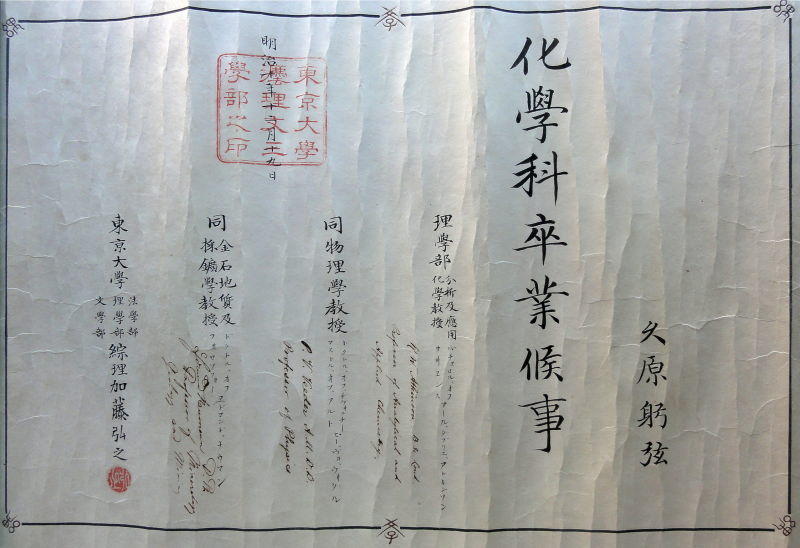 化學科卒業候事
久原躬弦
理學部 分析及應用化學教授
R. W. Atkinson B. Sc. Lond
Professor of Analytical and
Applied Chemistry
同 物理學教授
P. V. Veeder A.M. D.D.
Professor of Physics
同 金石地質及採鑛學教授
Professor of Mineralogy
東京大學 法學部 理學部 文學部 綜理加藤弘之
明治十年十二月十九日
東京大學
法理文三
學部之印